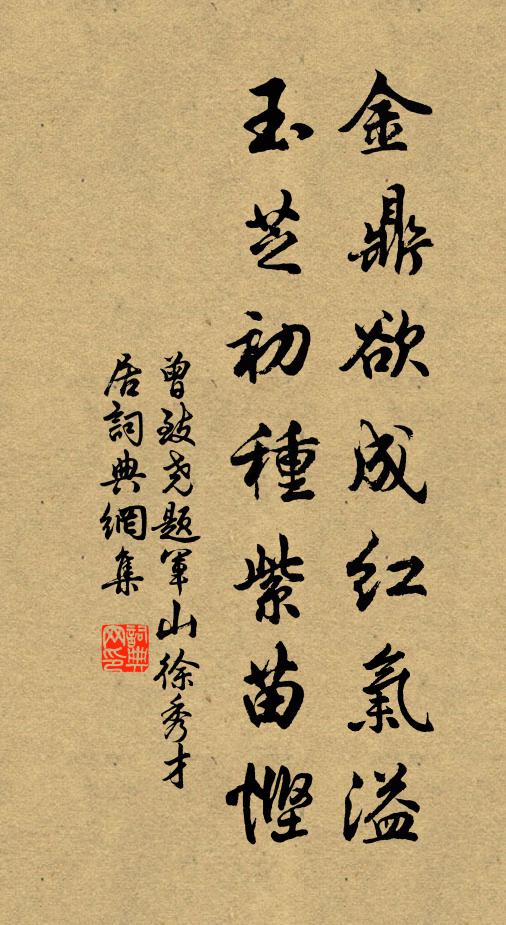 金鼎欲成红氣溢
玉芝初種紫苗慳
曾致尧題軍山徐秀才
居詞典網集
詞典網印